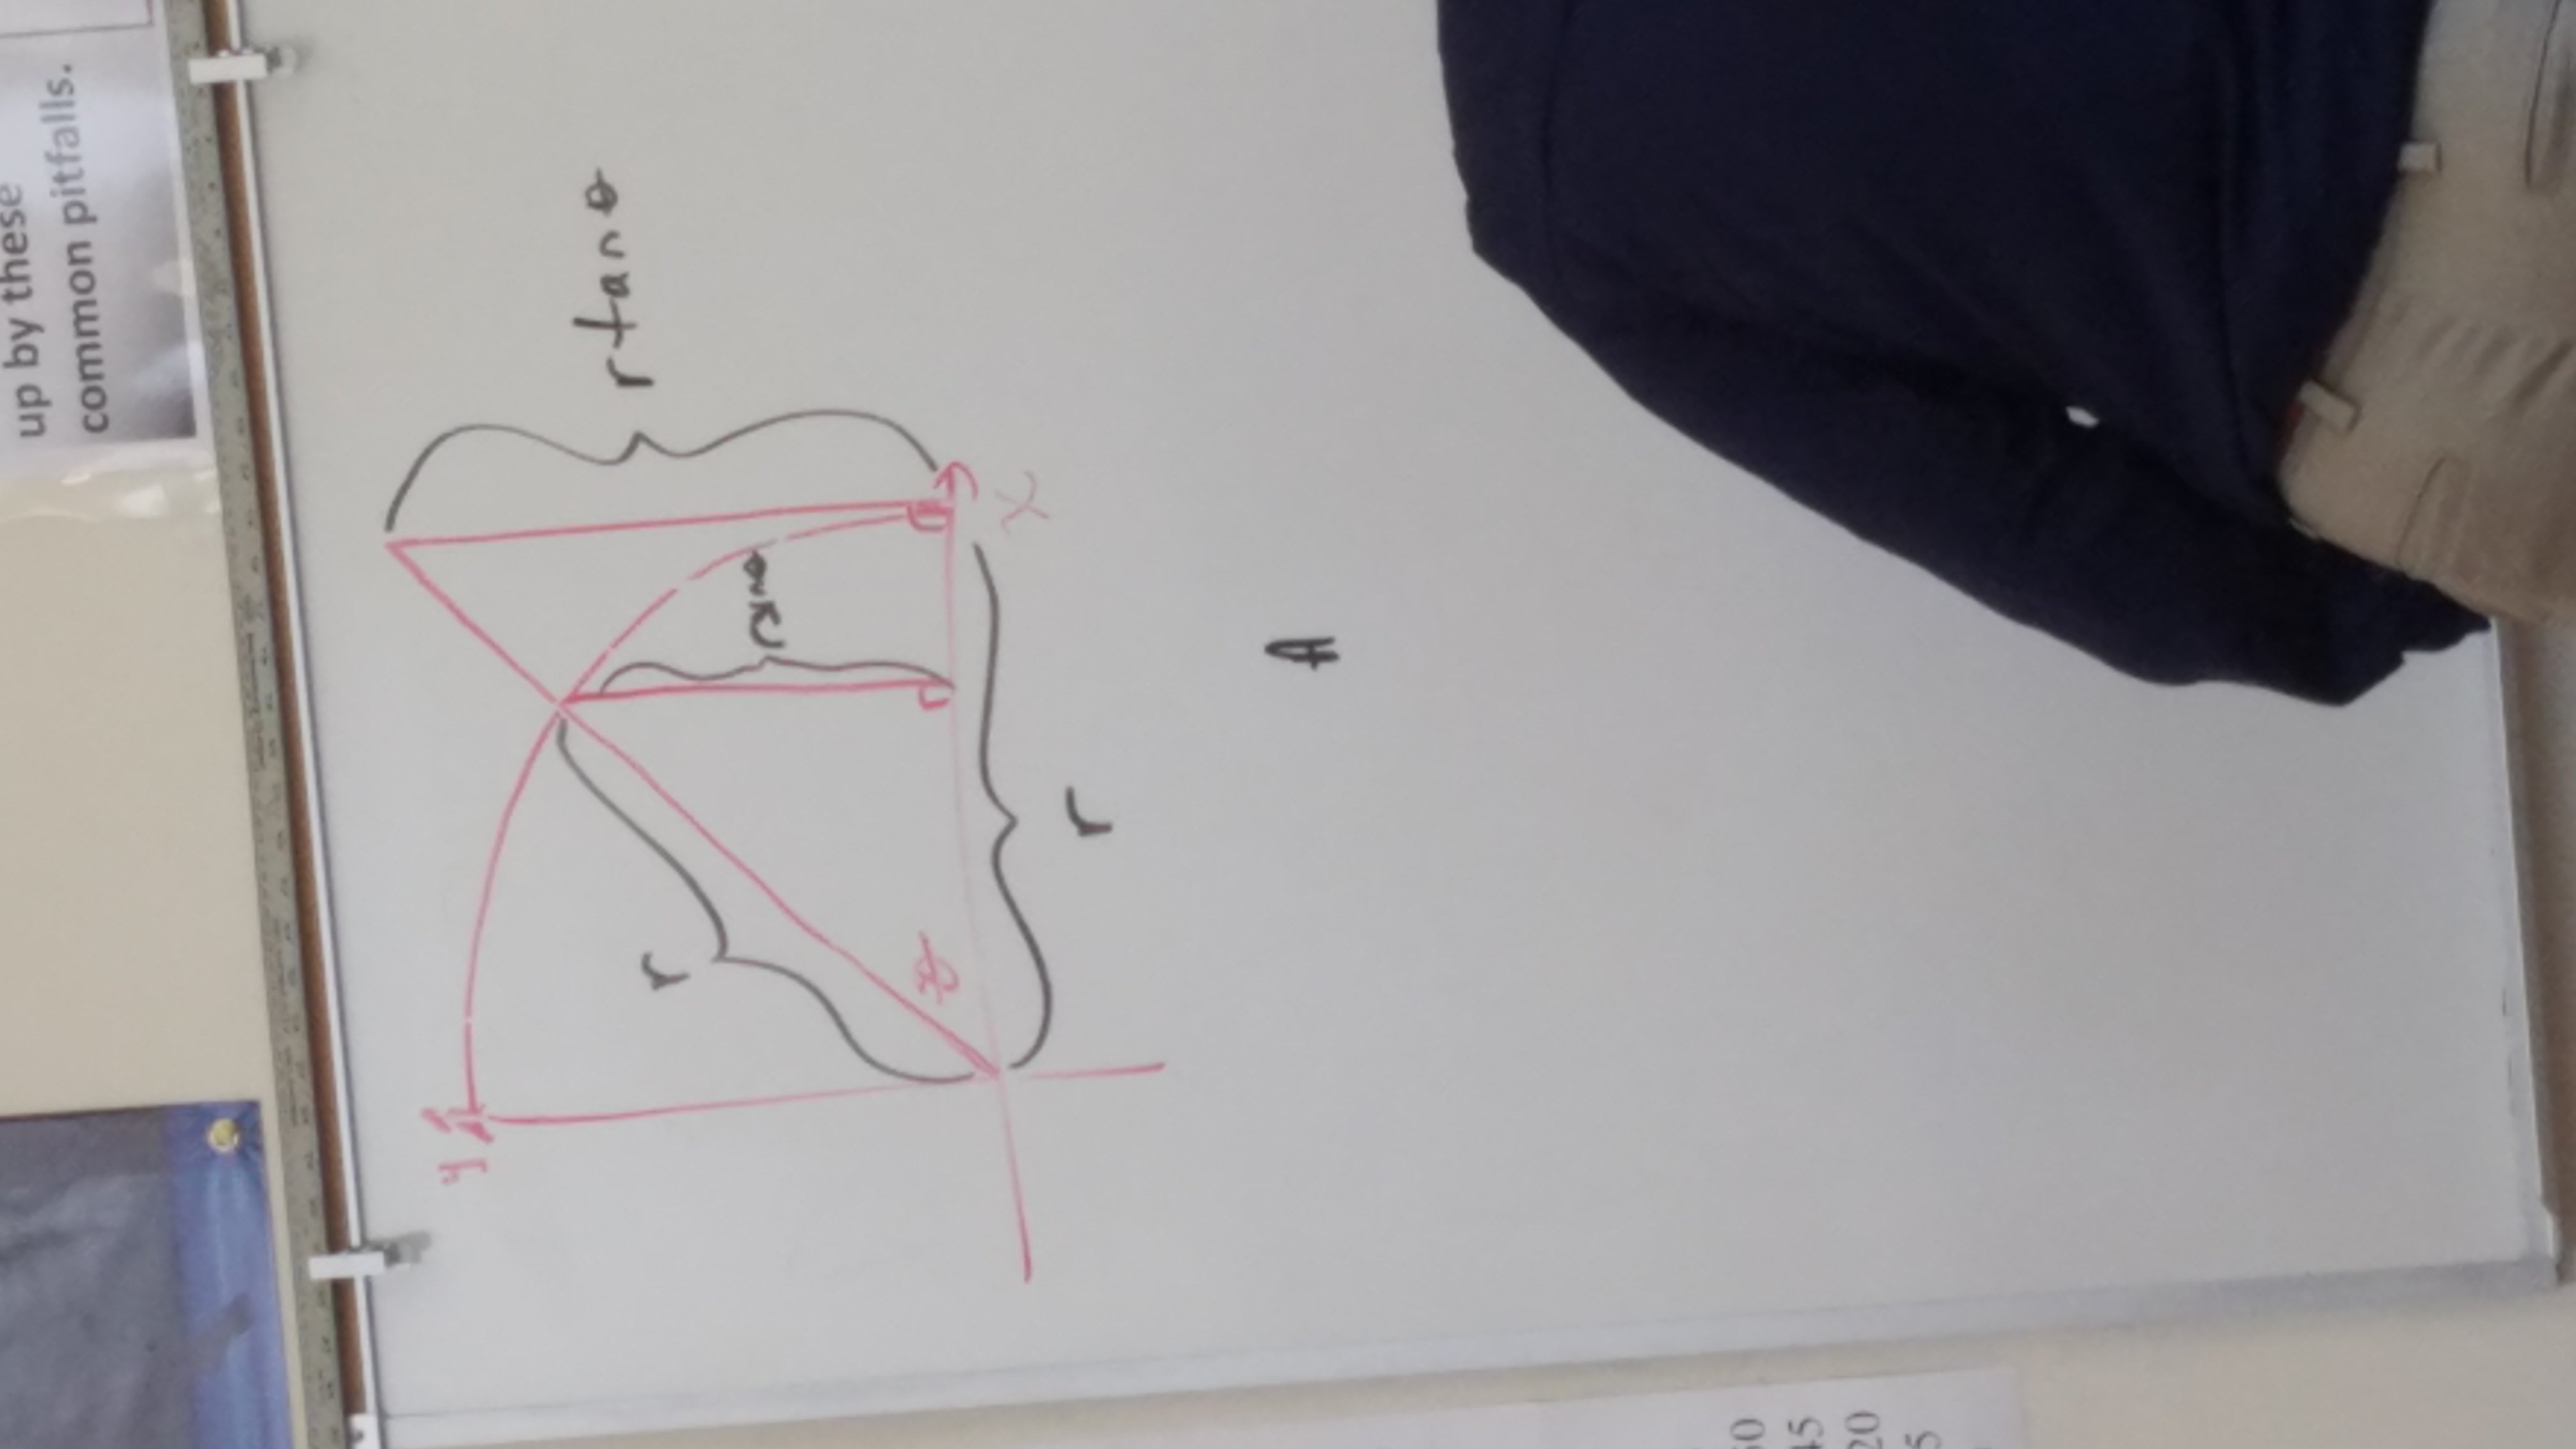 up by these
common pitfalls.
y
r
r tan θ
r sin θ
θ
x
r
A
45
20
5